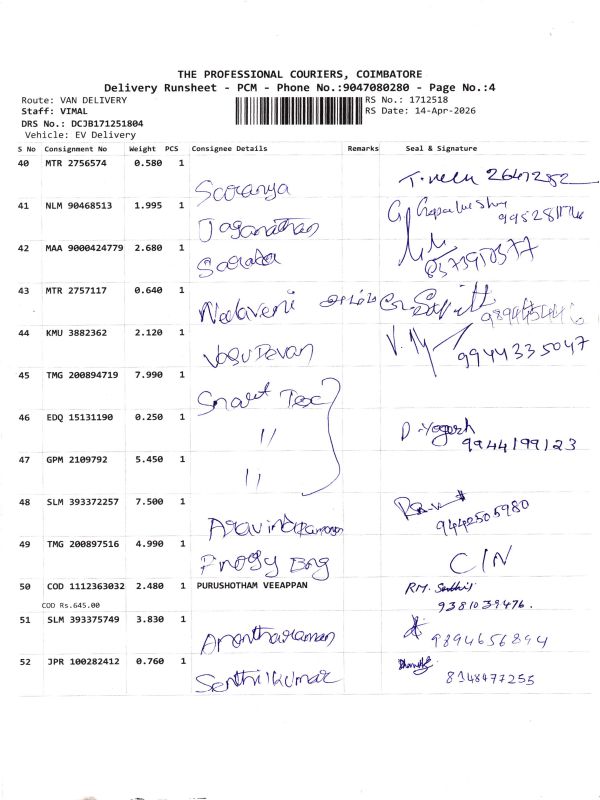 THE PROFESSIONAL COURIERS, COIMBATORE
Delivery Runsheet - PCM - Phone No.:9047080280 - Page No.:4
Route: VAN DELIVERY RS No.: 1712518
Staff: VIMAL RS Date: 14-Apr-2026
DRS No.: DCJB171251804
Vehicle: EV Delivery
S No Consignment No Weight PCS Consignee Details Remarks Seal & Signature
40 MTR 2756574 0.580 1
Saranya 2647282
41 NLM 90468513 1.995 1
Jaganathan
42 MAA 9000424779 2.680 1
Sarada
43 MTR 2757117 0.640 1
44 KMU 3882362 2.120 1
Vasudevan 9944335047
45 TMG 200894719 7.990 1
Smart Tex
46 EDQ 15131190 0.250 1
" D-Yogesh
9944199123
47 GPM 2109792 5.450 1
"
48 SLM 393372257 7.500 1
9442505980
49 TMG 200897516 4.990 1
C/N
50 COD 1112363032 2.480 1 PURUSHOTHAM VEEAPPAN
COD Rs.645.00 9381039476.
51 SLM 393375749 3.830 1
Anantharaman 9894656894
52 JPR 100282412 0.760 1
Senthilkumar 8148477255